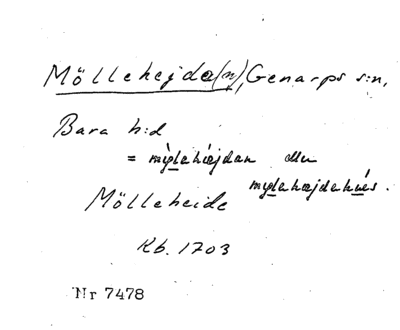 Möllehejda(n), Genarps s:n,
Bara h:d
= mỳlehæjdan eller
mylehæjdehués.
Mölleheide
Kb. 1703
Nr 7478